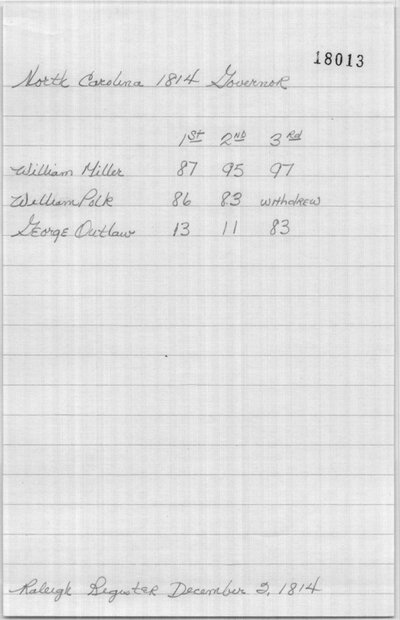 18013
North Carolina 1814 Governor
1st 2nd 3rd
William Miller 87 95 97
William Polk 86 83 withdrew
George Outlaw 13 11 83
Raleigh Register December 2, 1814